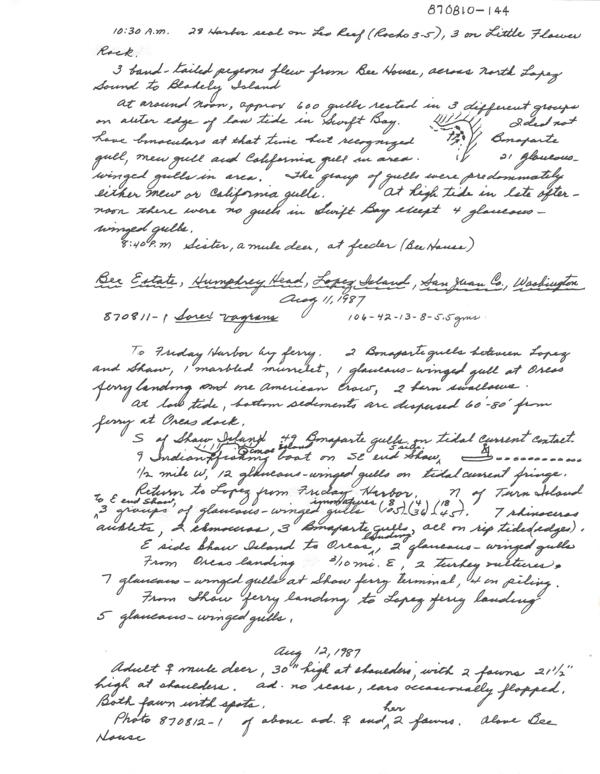 870810-144
10:30 A.M. 28 Harbor seal on Leo Reef (Rocks 3-5), 3 on Little Flower
Rock.
3 band-tailed pigeons flew from Bee House, across North Lopez
Sound to Blakely Island
At around noon, approx 600 gulls rested in 3 different groups
on outer edge of low tide in Swift Bay. I did not
have binoculars at that time but recognized Bonaparte
gull, mew gull and California gull in area. 21 glaucous-
winged gulls in area. The group of gulls were predominately
either mew or California gulls. At high tide in late after-
noon there were no gulls in Swift Bay except 4 glaucous-
winged gulls.
8:40 P.M Sister, a mule deer, at feeder (Bee House)
Bee Estate, Humphrey Head, Lopez Island, San Juan Co, Washington
Aug 11, 1987
870811-1 Sorex vagrans 106-42-13-8-5.5 gms.
To Friday Harbor by ferry. 2 Bonaparte gulls between Lopez
and Shaw, 1 marbled murrelet, 1 glaucous-winged gull at Orcas
ferry landing and one American Crow, 2 barn swallows.
At low tide, bottom sediments are dispersed 60'-80' from
ferry at Orcas dock.
S of Shaw Island 49 Bonaparte gulls on tidal current contact.
9 Indian fishing boat on SE end Shaw
1/2 mile W, 12 glaucous-winged gulls on tidal current fringe.
Return to Lopez from Friday Harbor. N of Turn Island
to E end Shaw, immatures
3 groups of glaucous-winged gulls (8/25) (4/36) (18/45). 7 rhinoceros
auklets, 2 3 Bonaparte gulls, all on rip tides (edges).
E side Shaw Island to Orcas landing, 2 glaucous-winged gulls
From Orcas landing 3/10 mi. E, 2 turkey vultures.
7 glaucous-winged gulls at Shaw ferry terminal, 4 on piling.
From Shaw ferry landing to Lopez ferry landing
5 glaucous-winged gulls.
Aug 12, 1987
Adult ♀ mule deer, 30" high at shoulders, with 2 fawns 21 1/2"
high at shoulders. ad. no scars, ears occasionally flopped.
Both fawn with spots.
Photo 870812-1 of above ad. ♀ and her 2 fawns. Above Bee
House